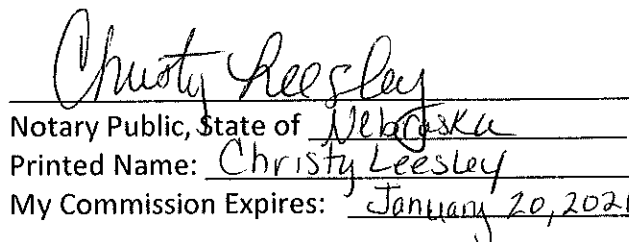 Christy Leesley
Notary Public, State of Nebraska
Printed Name: Christy Leesley
My Commission Expires: January 20, 2021